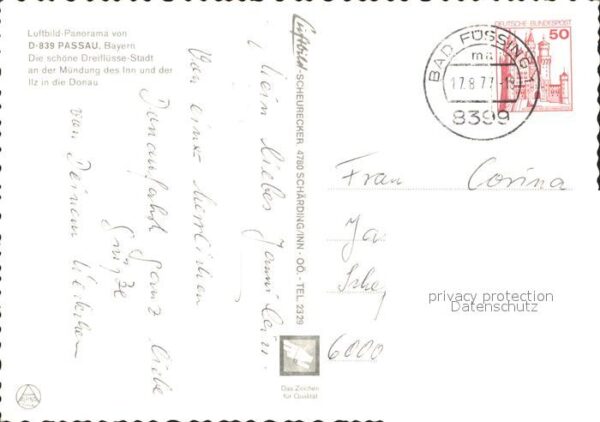 Luftbild-Panorama von
D-839 PASSAU, Bayern
Die schöne Dreiflüsse-Stadt
an der Mündung des Inn und der
Ilz in die Donau
Mein liebes
Von einer herrlichen
Donaufahrt ganz liebe
Grüße
von Deinem
Luftbild-SCHEURECKER 4780 SCHÄRDING/INN · OÖ. · TEL. 2329
Das Zeichen
für Qualität
DEUTSCHE BUNDESPOST
50
BAD FÜSSING 1
ma
17.8.77.-18
8399
Frau Corina
Ja
6000
privacy protection
Datenschutz